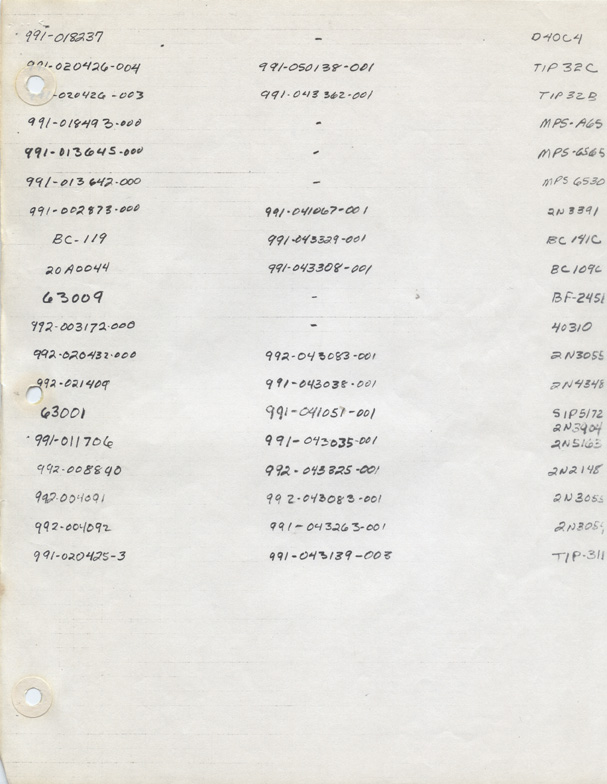 991-018237 - D40C4
991-020426-004 991-050138-001 TIP 32C
-020426-003 991-043362-001 TIP 32B
991-018493-000 - MPS-A65
991-013645-000 - MPS-6565
991-013642-000 - MPS 6530
991-002873-000 991-041067-001 2N3391
BC-119 991-043329-001 BC 141C
20A0044 991-043308-001 BC109C
63009 - BF-245
992-003172-000 - 40310
992-020432-000 992-043083-001 2N3055
992-021409 991-043038-001 2N4348
63001 991-041051-001 SIP5172
2N3904
991-011706 991-043035-001 2N5163
992-008890 992-043325-001 2N2148
992-004091 992-043083-001 2N3055
992-004092 991-043263-001 2N3055
991-020425-3 991-043139-003 TIP-31